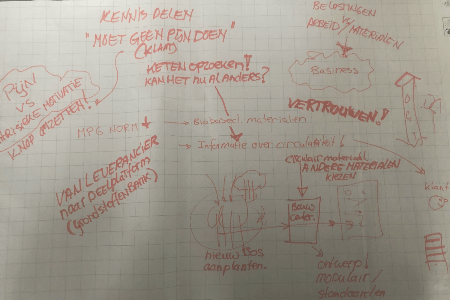 KENNIS DELEN
"MOET GEEN PIJN DOEN"
(KLANT)
BELASTINGEN
VS
ARBEID / MATERIALEN
KETEN OPZOEKEN!
KAN HET NU AL ANDERS?
Business
PIJN
VS
MOTIVATIE
KNOP OMZETTEN!
VERTROUWEN!
MPG NORM
Biobased materialen
Informatie over circulariteit!
VAN LEVERANCIER
naar DEELPLATFORM
(grondstoffenbank)
circulair materiaal
ANDERE MATERIALEN
KIEZEN
Klant
Bouw
nieuw Bos
aanplanten.
ontwerp!
modulair /
standaarden